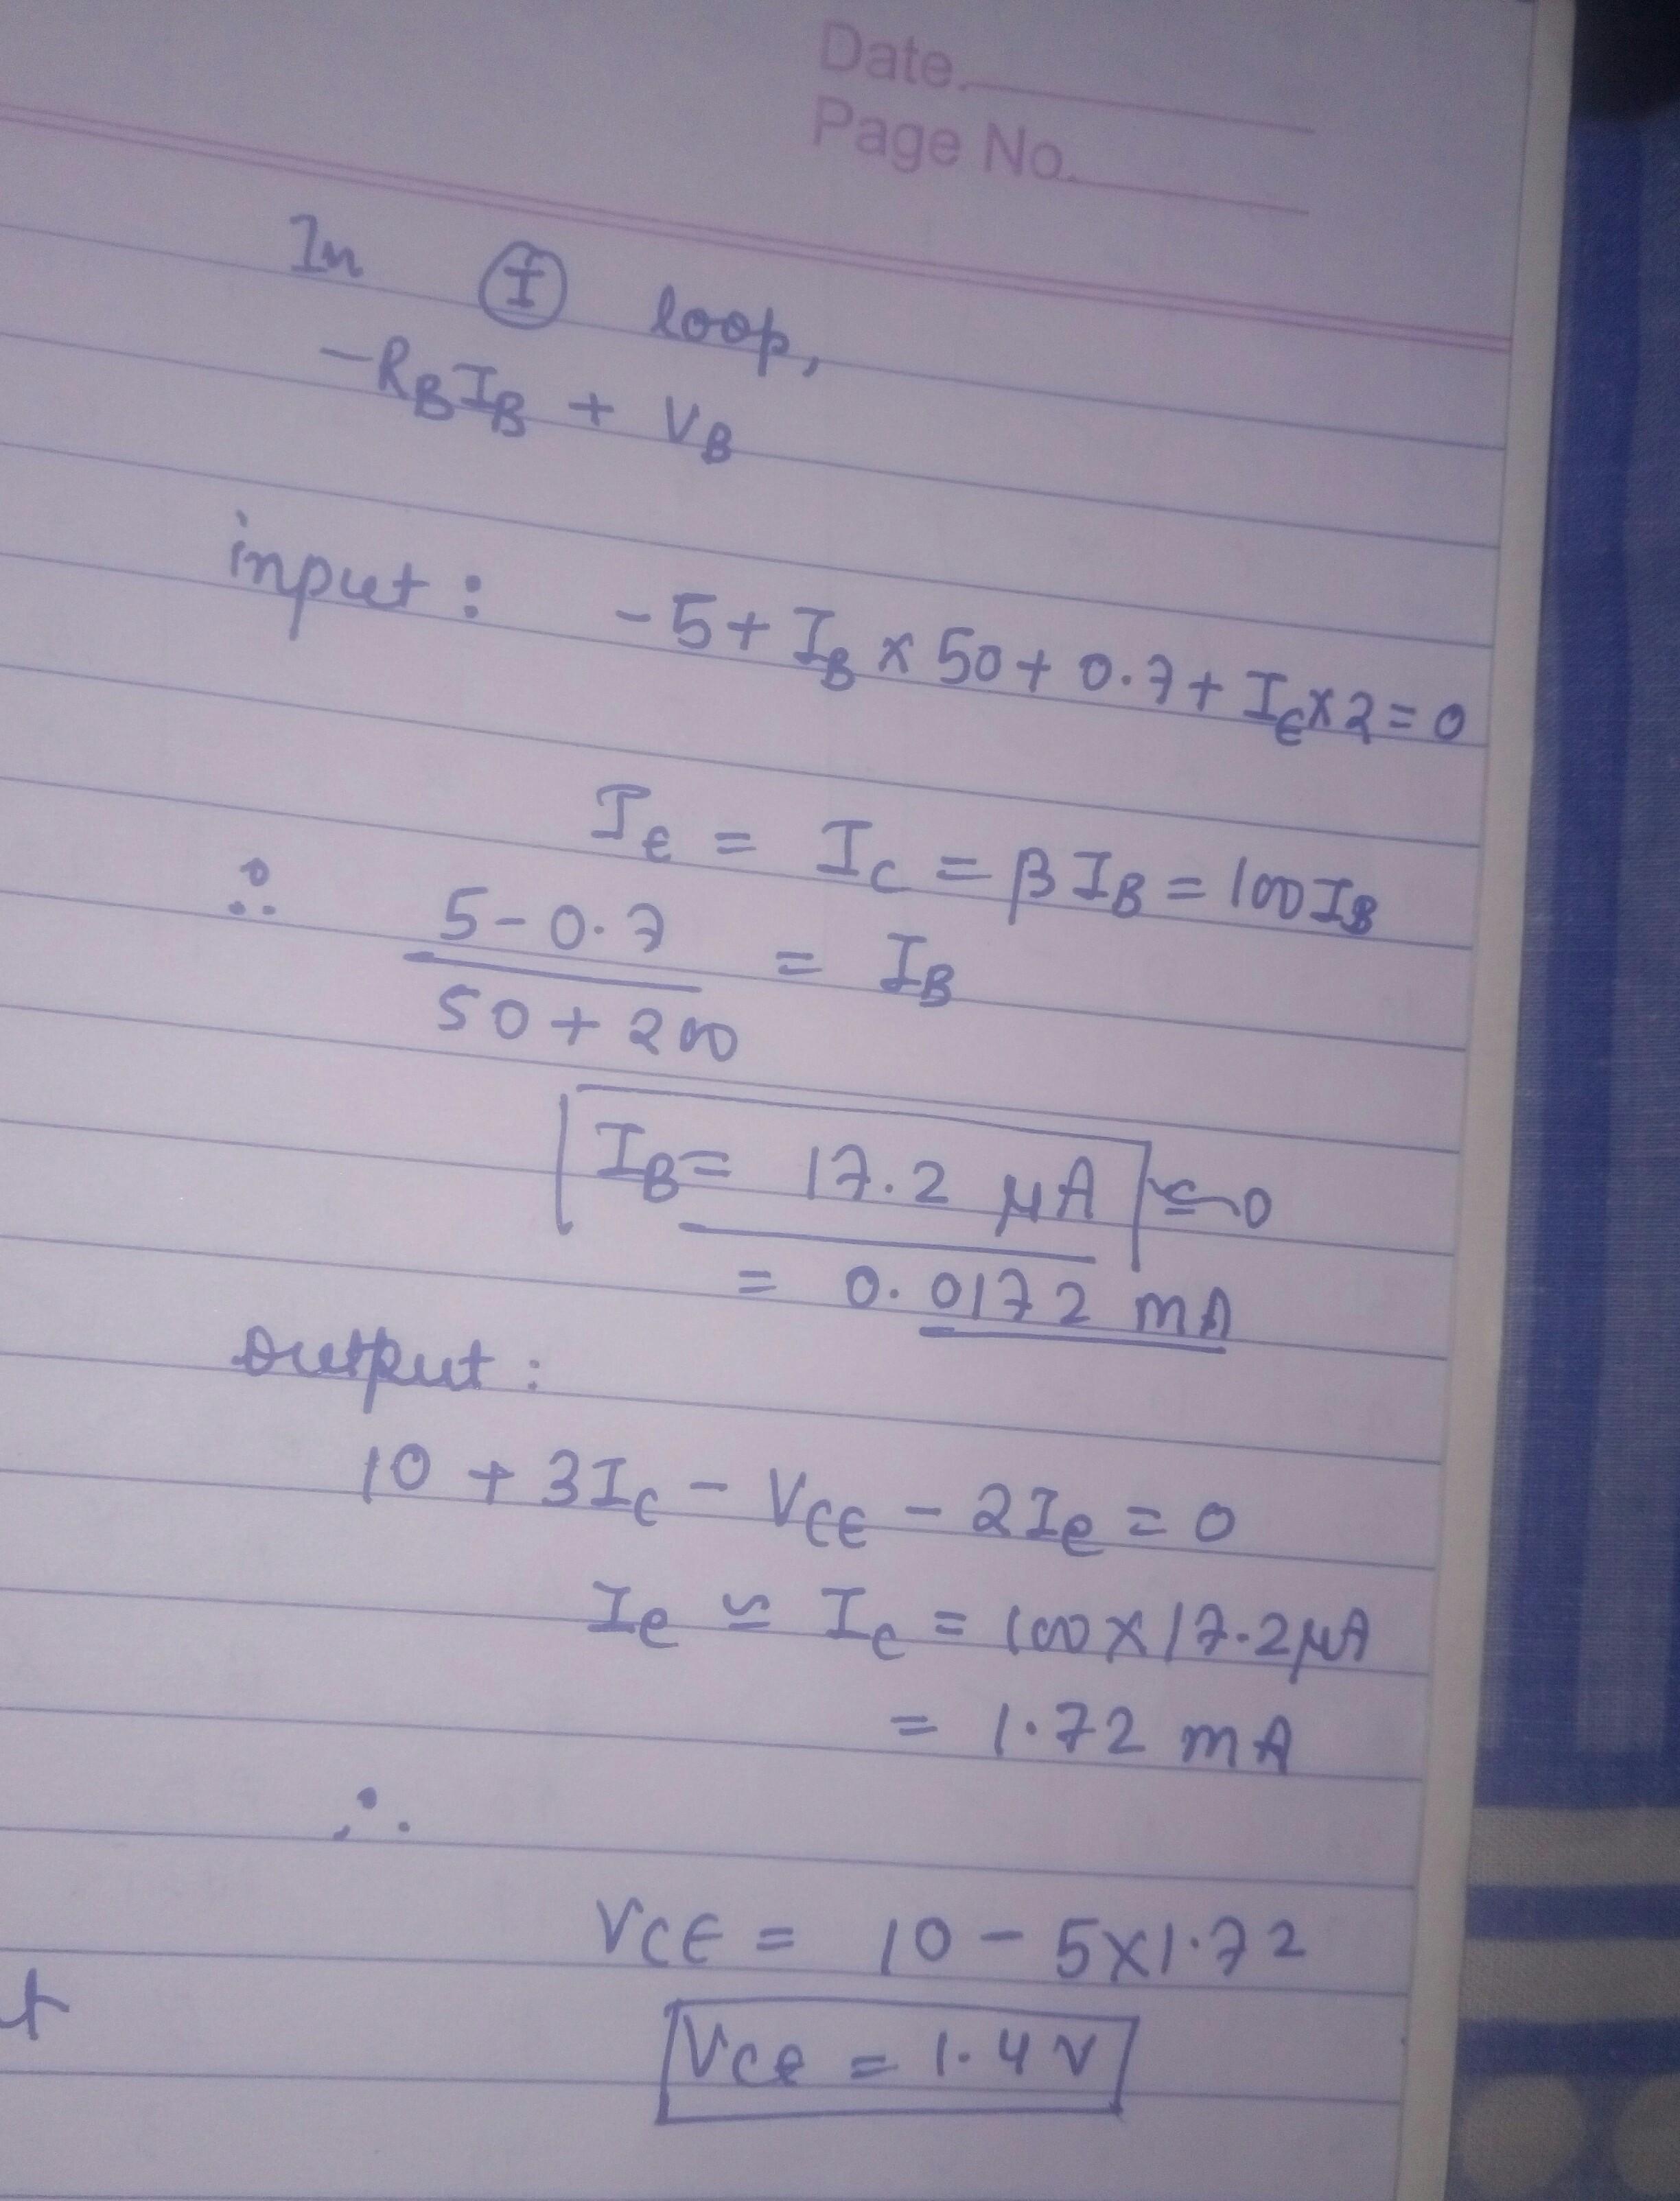 Date.
Page No.
In Ⓘ loop,
-R_B I_B + V_B
input : -5 + I_B × 50 + 0.7 + I_E × 2 = 0
I_E = I_C = β I_B = 100 I_B
∴ 5 - 0.7 / 50 + 200 = I_B
I_B = 17.2 μA ≃ 0
= 0.0172 mA
output :
10 + 3I_C - V_CE - 2I_e = 0
I_e ≃ I_c = 100 × 17.2 μA
= 1.72 mA
∴
V_CE = 10 - 5×1.72
t
V_ce = 1.4 V